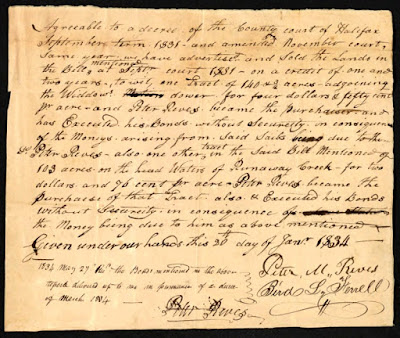 Agreeable to a decree of the County court of Halifax
September term 1831 - and amended November court
Same year we have advertised and Sold the Lands in
mentioned
the Bill, at Sept. court 1831 - on a credit of one and
two years, to wit, one Tract of 140 acres - adjoining
the Widows dower - for four dollars & fifty cents
pr acre - and Peter Reves became the purchaser and
has Executed his Bonds without Security in consequence
of the Moneys - arising from Said Sales due to the
Sd Peter Reves - also one other tract in the Said Bill Mentioned
of 103 acres - on the head Waters of Runaway Creek - for two
dollars and 95 cents pr acre - Peter Reves became the
purchaser of that Tract also & Executed his Bonds
Without Security - in consequence of
the Money being due to him as above mentioned
Given under our hands this 20 day of Jany 1834 -
Peter M. Reves
Bird L. Ferrell
1834 May 27th the Bonds mentioned in the above
report delivered up to me in pursuance of a decree
of March 1834 -
Peter Reves